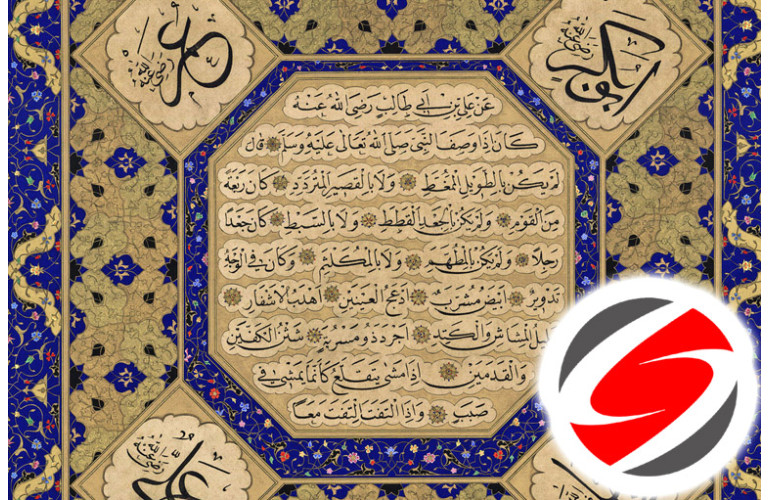 ابو بكر رضي الله عنه
عمر رضي الله عنه
عن علي بن ابي طالب رضي الله عنه
كان اذا وصف النبي صلى الله تعالى عليه وسلم قال
لم يكن بالطويل الممغط ولا بالقصير المتردد كان ربعة
من القوم ولم يكن بالجعد القطط ولا بالسبط كان جعدا
رجلا ولم يكن بالمطهم ولا بالمكلثم وكان في الوجه
تدوير ابيض مشرب ادعج العينين اهدب الاشفار
جليل المشاش والكتد اجرد ذو مسربة شثن الكفين
والقدمين اذا مشى يتقلع كانما يمشي في
صبب واذا التفت التفت معا
علي رضي الله عنه